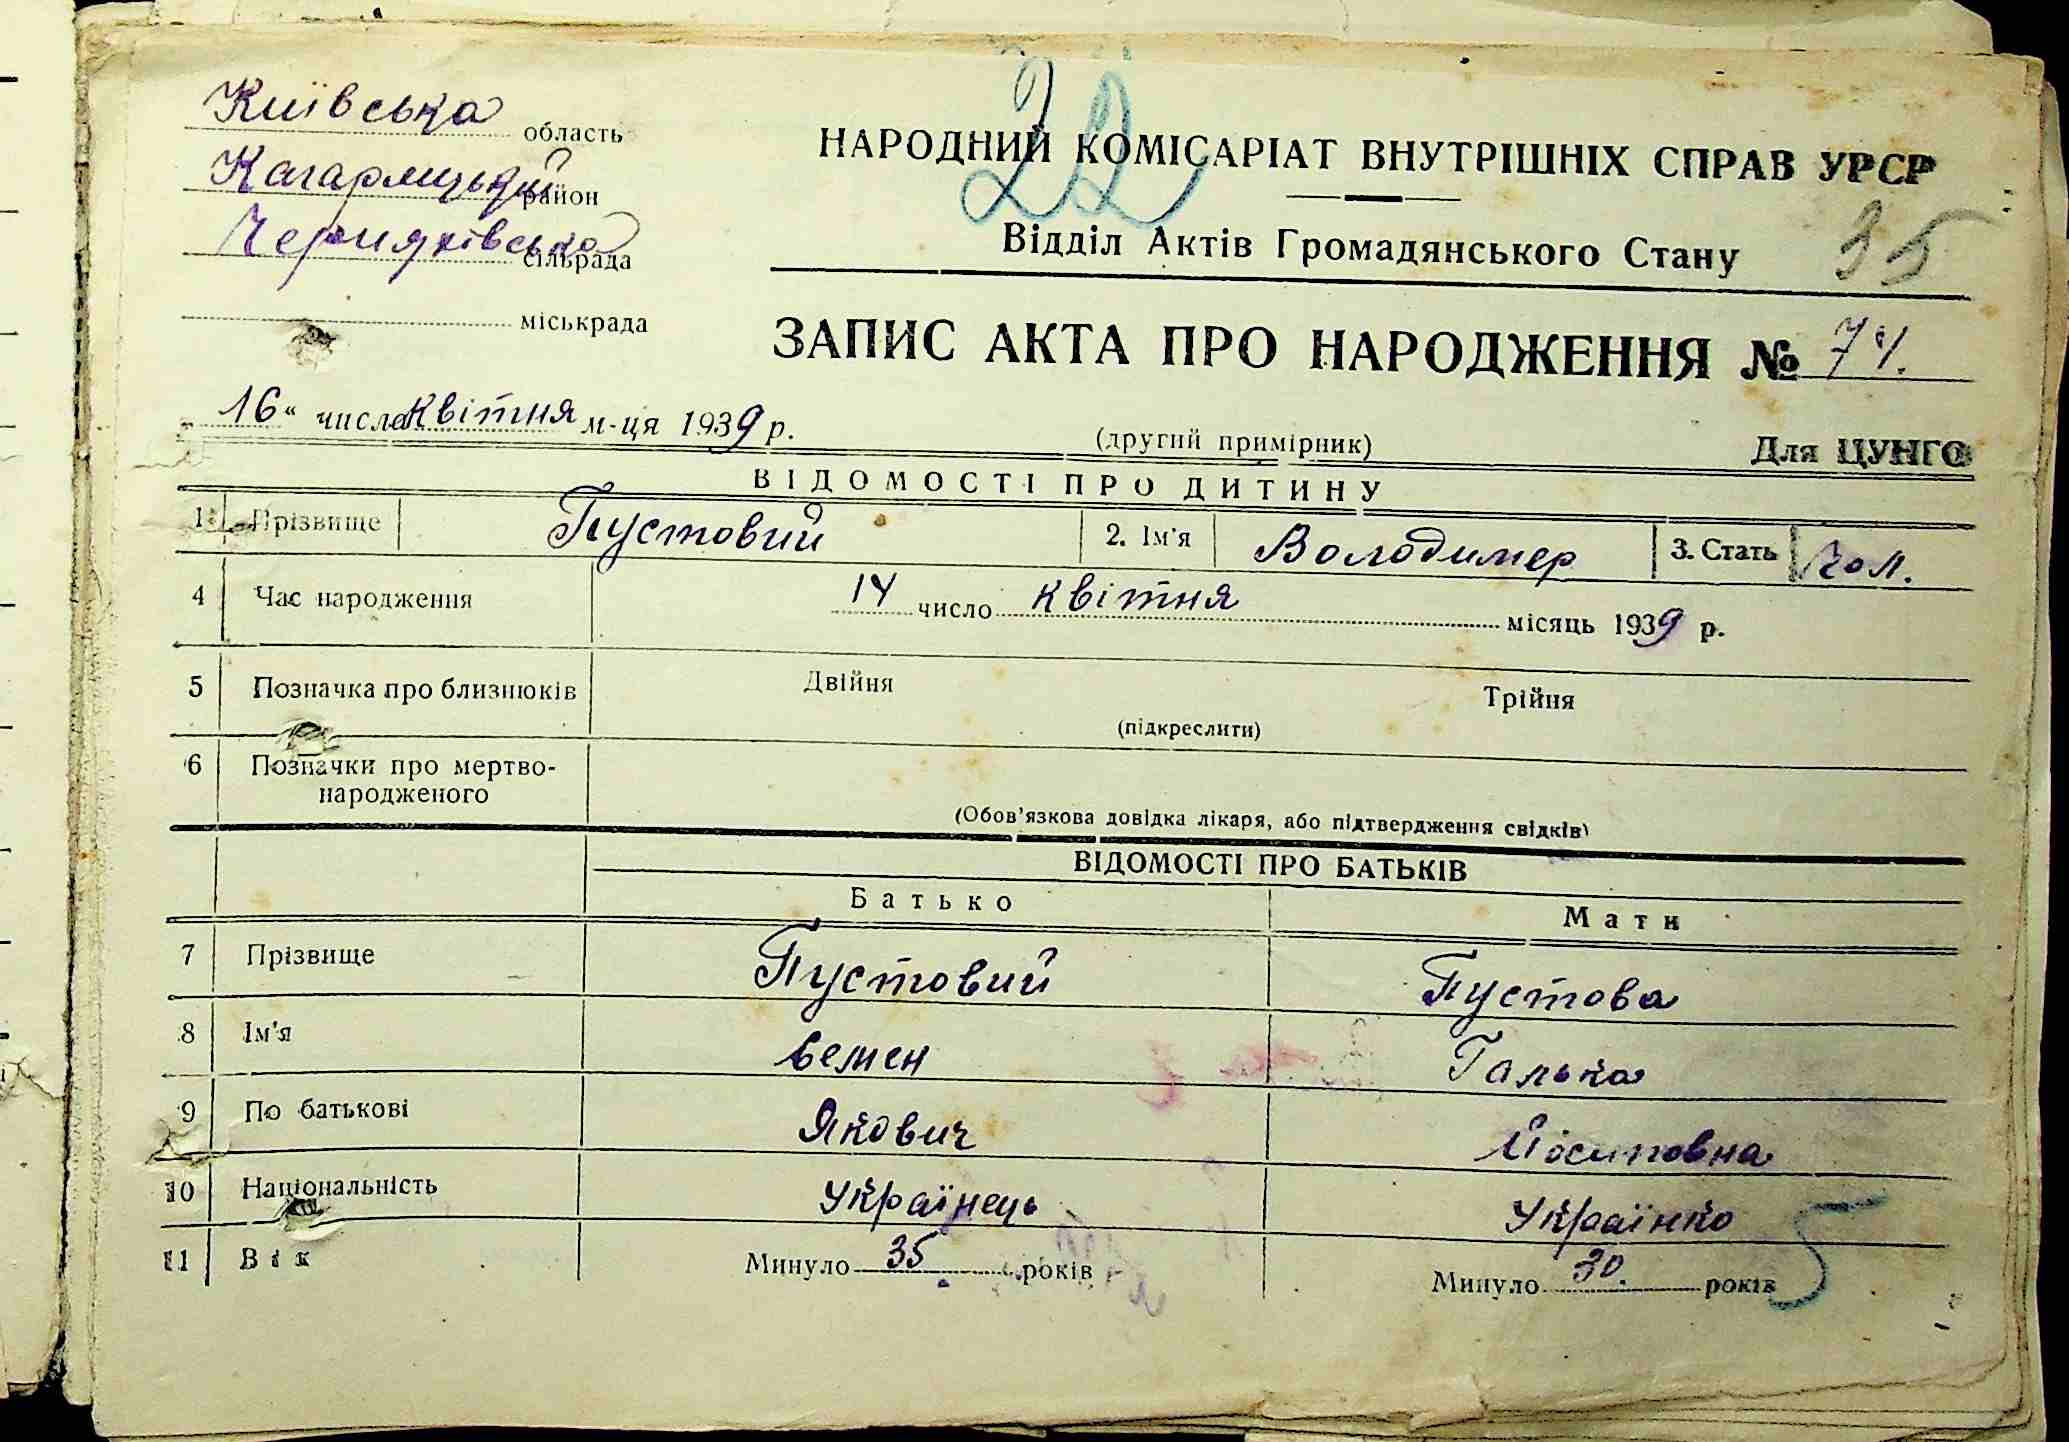 Київська область
Кагарлицький район
Черняхівська сільрада
міськрада
22
НАРОДНИЙ КОМІСАРІАТ ВНУТРІШНІХ СПРАВ УРСР
Відділ Актів Громадянського Стану
35
ЗАПИС АКТА ПРО НАРОДЖЕННЯ № 74.
„16“ числа квітня м-ця 1939 р.
(другий примірник)
Для ЦУНГО
ВІДОМОСТІ ПРО ДИТИНУ
1. Прізвище Пустовий 2. Ім'я Володимер 3. Стать чол.
4 Час народження 14 число квітня місяць 1939 р.
5 Позначка про близнюків Двійня Трійня
(підкреслити)
6 Позначки про мертво-
народженого
(Обов'язкова довідка лікаря, або підтвердження свідків)
ВІДОМОСТІ ПРО БАТЬКІВ
Батько Мати
7 Прізвище Пустовий Пустова
8 Ім'я Семен Галька
9 По батькові Якович Йосиповна
10 Національність Українець Українко
11 Вік Минуло 35 років Минуло 30. років
5